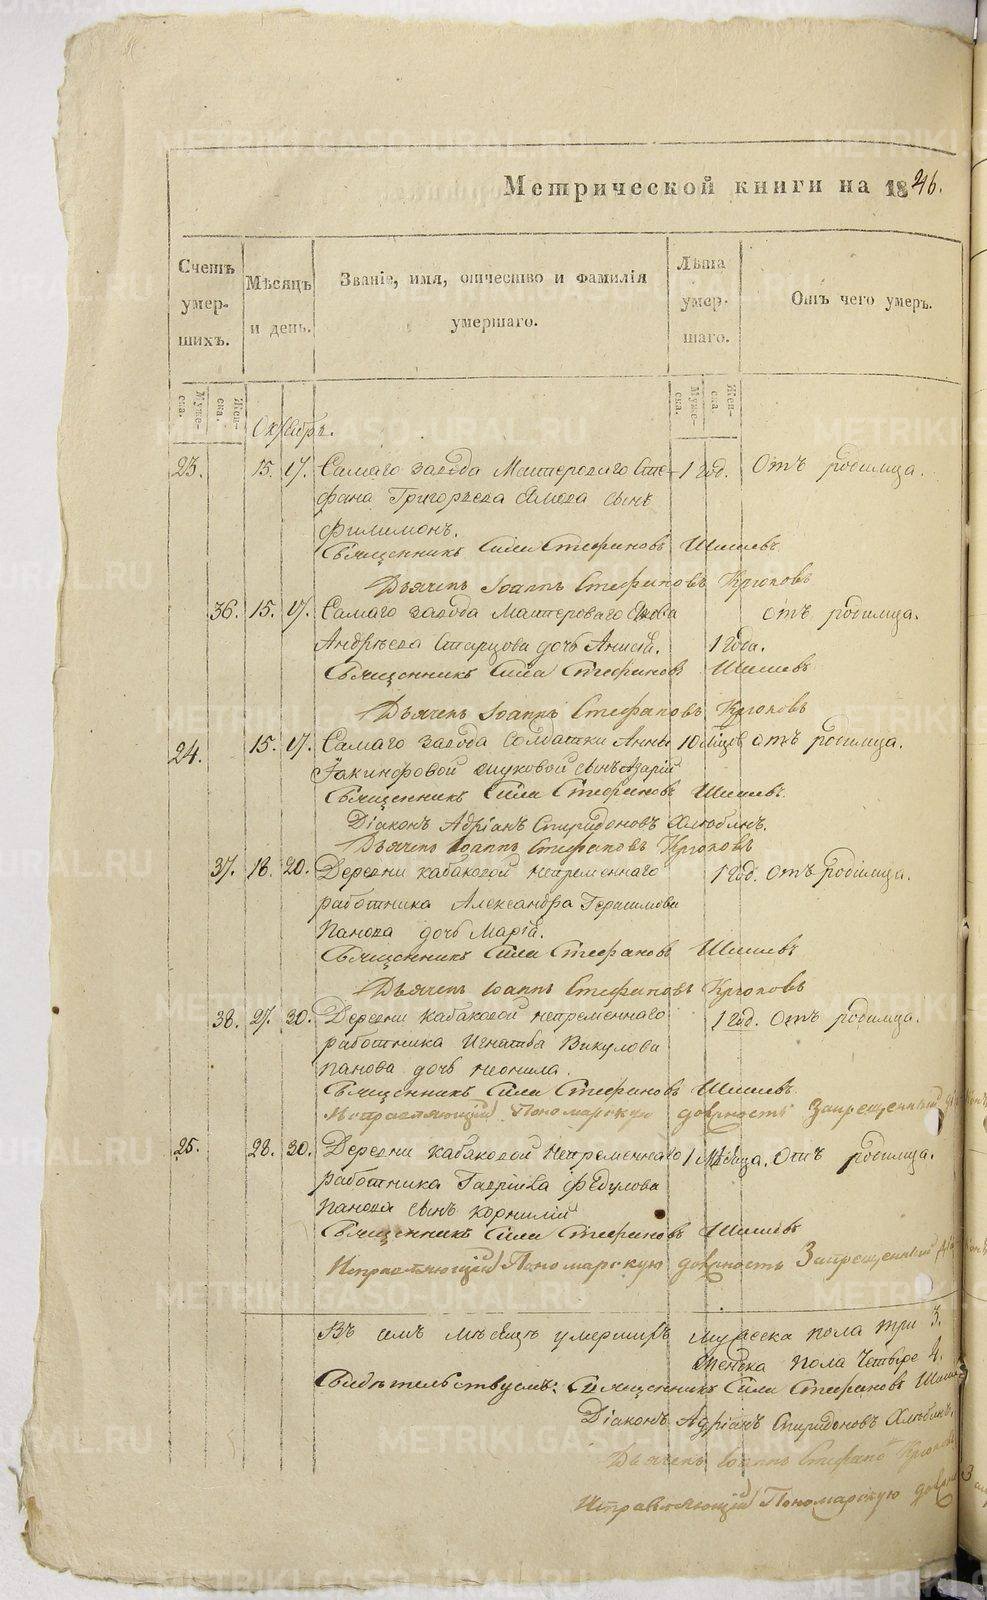 Метрической книги на 1846.
Счетъ умер- шихъ.
Мѣсяцъ и день.
Званіе, имя, отчество и фамилія умершаго.
Лѣта умер- шаго.
Отъ чего умеръ.
Муже- ска. Жен- ска. Муже- ска. Жен- ска.
Октябрь.
23. 15. 17. Самаго завода Мастероваго Сте- 1 год. Отъ родимца.
фана Григорьева сынъ
Филимонъ.
Священникъ Сила Стефановъ Шишевъ
Дьячекъ Іоаннъ Стефановъ Крюковъ
36. 15. 17. Самаго завода Мастероваго отъ родимца.
Андрѣева Старцова дочь Анисія. 1 года.
Священникъ Сила Стефановъ Шишевъ
Дьячекъ Іоаннъ Стефановъ Крюковъ
24. 15. 17. Самаго завода Солдатки Анны 10 мѣсцѣв отъ родимца.
Іакинфовой сынъ Азарій
Священникъ Сила Стефановъ Шишевъ.
Діаконъ Адріанъ Спиридоновъ Хлюбинъ.
Дьячекъ Іоаннъ Стефановъ Крюковъ
37. 18. 20. Деревни кабаковой непременнаго 1 год. отъ родимца.
работника Александра Герасимова
Панова дочь Марія.
Священникъ Сила Стефановъ Шишевъ
Дьячекъ Іоаннъ Стефановъ Крюковъ
38. 27. 30. Деревни кабаковой непременнаго 1 год. отъ родимца.
работника Игнатья Викулова
панова дочь неонила.
Священникъ Сила Стефановъ Шишевъ.
Исправляющій Пономарскую должность Запрещенный
25. 28. 30. Деревни кабаковой непременнаго 1 мѣсяца. Отъ родимца.
работника Гавріила Федулова
панова сынъ корнилій
Священникъ Сила Стефановъ Шишевъ
Исправляющій Пономарскую должность Запрещенный
Въ семъ мѣсяцѣ умершихъ мужеска пола три 3.
женска пола четыре 4.
Свидѣтельствуемъ: Священникъ Сила Стефановъ
Діаконъ Адріанъ Спиридоновъ Хлюбинъ.
Дьячекъ Іоаннъ Стефановъ Крюковъ
Исправляющій Пономарскую
METRIKI.GASO-URAL.RU